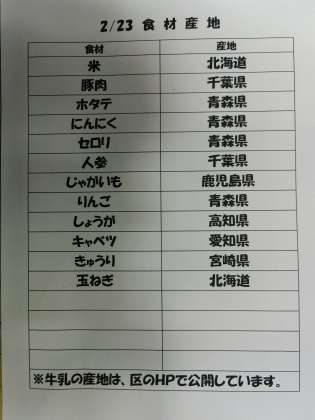 2/23 食材産地
食材 産地
米 北海道
豚肉 千葉県
ホタテ 青森県
にんにく 青森県
セロリ 青森県
人参 千葉県
じゃがいも 鹿児島県
りんご 青森県
しょうが 高知県
キャベツ 愛知県
きゅうり 宮崎県
玉ねぎ 北海道
※牛乳の産地は、区のHPで公開しています。